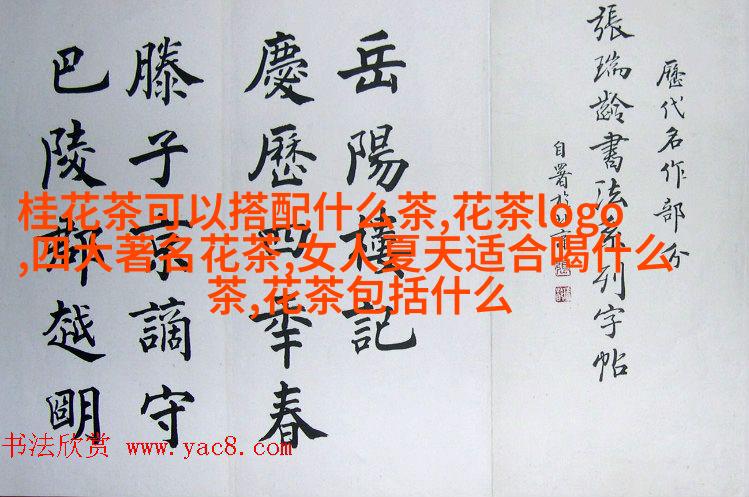 歷代名作部分
張瑞齡書法系列字帖
自署於
岳陽樓記
慶歷四年春
滕子京謫守
巴陵郡越明
桂花茶可以搭配什么茶,花茶logo
,四大著名花茶,女人夏天适合喝什么
茶,花茶包括什么
书法欣赏 www.yac8.com